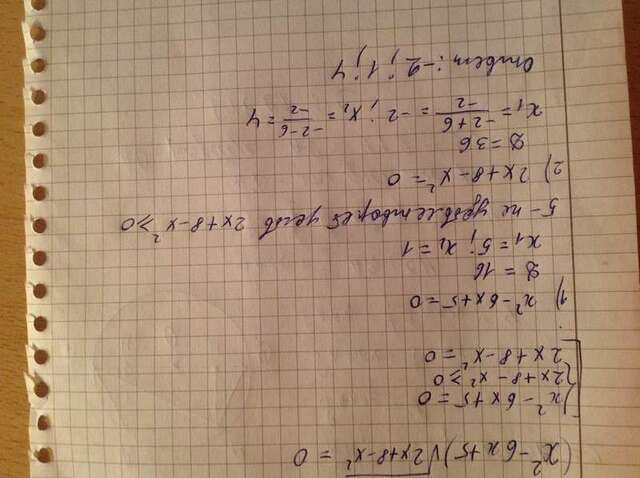 (x²-6x+5)√2x+8-x² = 0
x²-6x+5=0
2x+8-x²≥0
2x+8-x²=0
1) x²-6x+5=0
D=16
x₁=5; x₂=1
5-не удовлетворет услов 2x+8-x²≥0
2) 2x+8-x²=0
D=36
x₁=(-2+6)/(-2)=-2; x₂=(-2-6)/(-2)=4
Ответ: -2; 1; 4